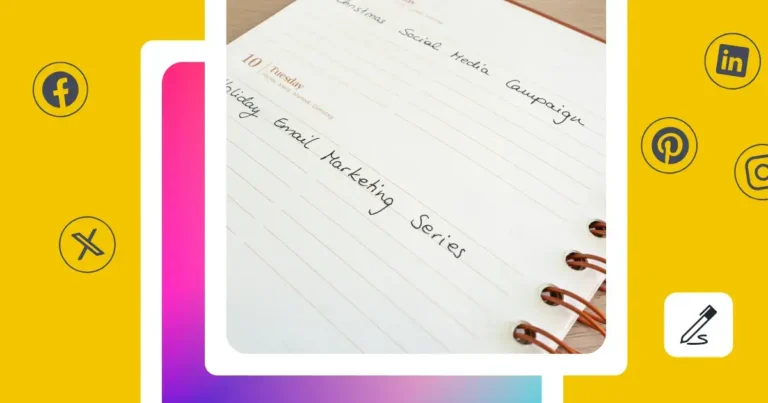 Christmas Social Media Campaign
10 Tuesday
Holiday Email Marketing Series
in